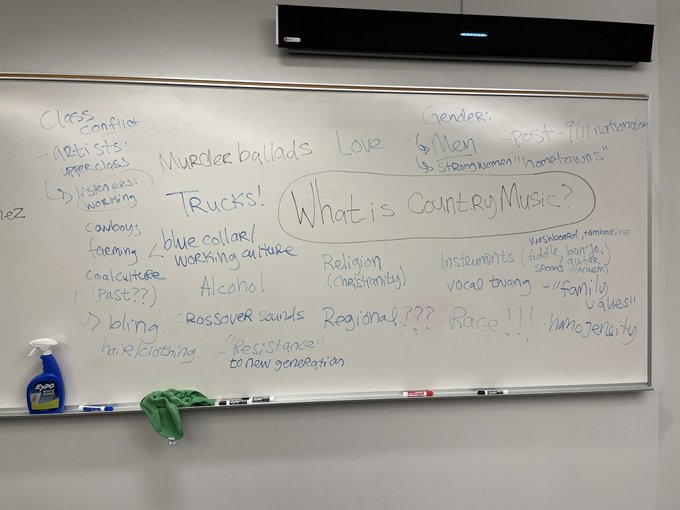 Class
conflict
- artists:
upper class
↳ listeners:
working
nez
cowboys
farming
coal culture
(past??)
↳ bling
hair/clothing
Murder ballads
Trucks!
blue collar/
working culture
Alcohol
crossover sounds
- "Resistance"
to new generation
Love
What is Country Music?
Religion
(christianity)
Regional???
Gender:
↳ Men
↳ strong women
- post-9/11 nationalism
"hometowns"
washboard, tambourine
Instruments (fiddle, banjo,
spoons, guitar
(acoustic)
vocal twang
- "family
values"
Race!!!
- homogeneity
EXPO